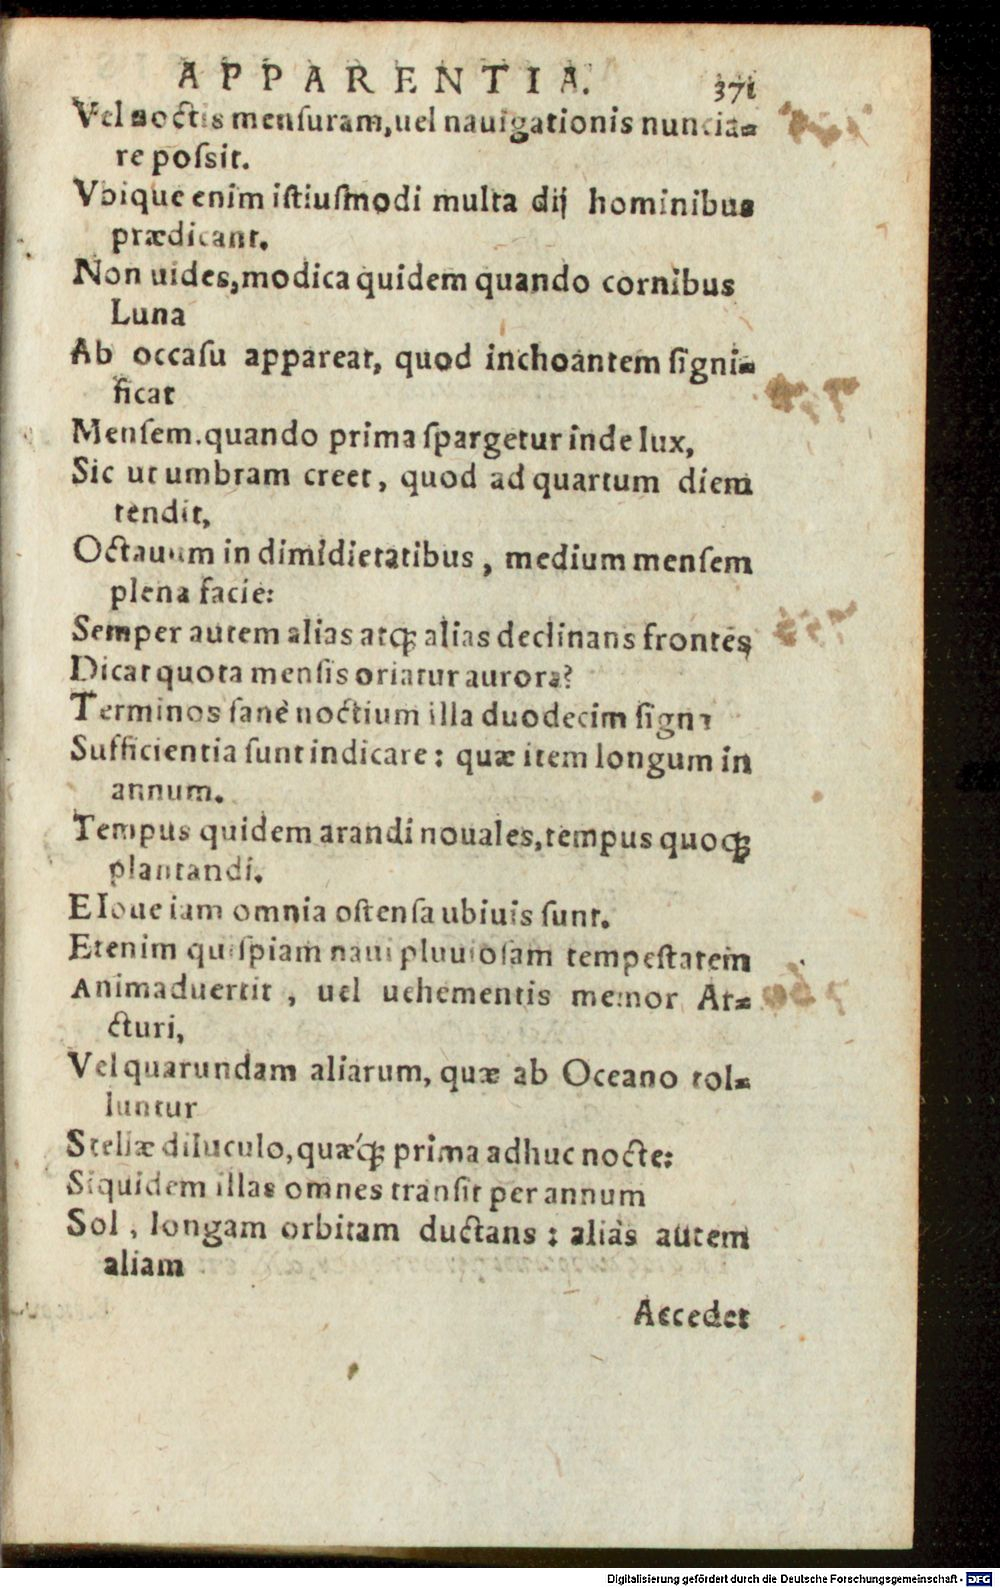 APPARENTIA. 371
Vel noctis mensuram, uel nauigationis nuncia=
re possit.
Vbique enim istiusmodi multa dij hominibus
prædicant.
Non uides, modica quidem quando cornibus
Luna
Ab occasu appareat, quod inchoantem signi=
ficat
Mensem. quando prima spargetur inde lux,
Sic ut umbram creet, quod ad quartum diem
tendit,
Octauum in dimidietatibus, medium mensem
plena facie:
Semper autem alias atq; alias declinans frontes
Dicat quota mensis oriatur aurora?
Terminos sanè noctium illa duodecim signa
Sufficientia sunt indicare: quæ item longum in
annum.
Tempus quidem arandi nouales, tempus quoq;
plantandi.
E Ioue iam omnia ostensa ubiuis sunt.
Etenim quispiam naui pluuiosam tempestatem
Animaduertit, uel uehementis memor Ar=
cturi,
Vel quarundam aliarum, quæ ab Oceano tol=
luntur
Stellæ diluculo, quæq; prima adhuc nocte:
Siquidem illas omnes transit per annum
Sol, longam orbitam ductans: aliàs autem
aliam
Accedet
Digitalisierung gefördert durch die Deutsche Forschungsgemeinschaft - DFG